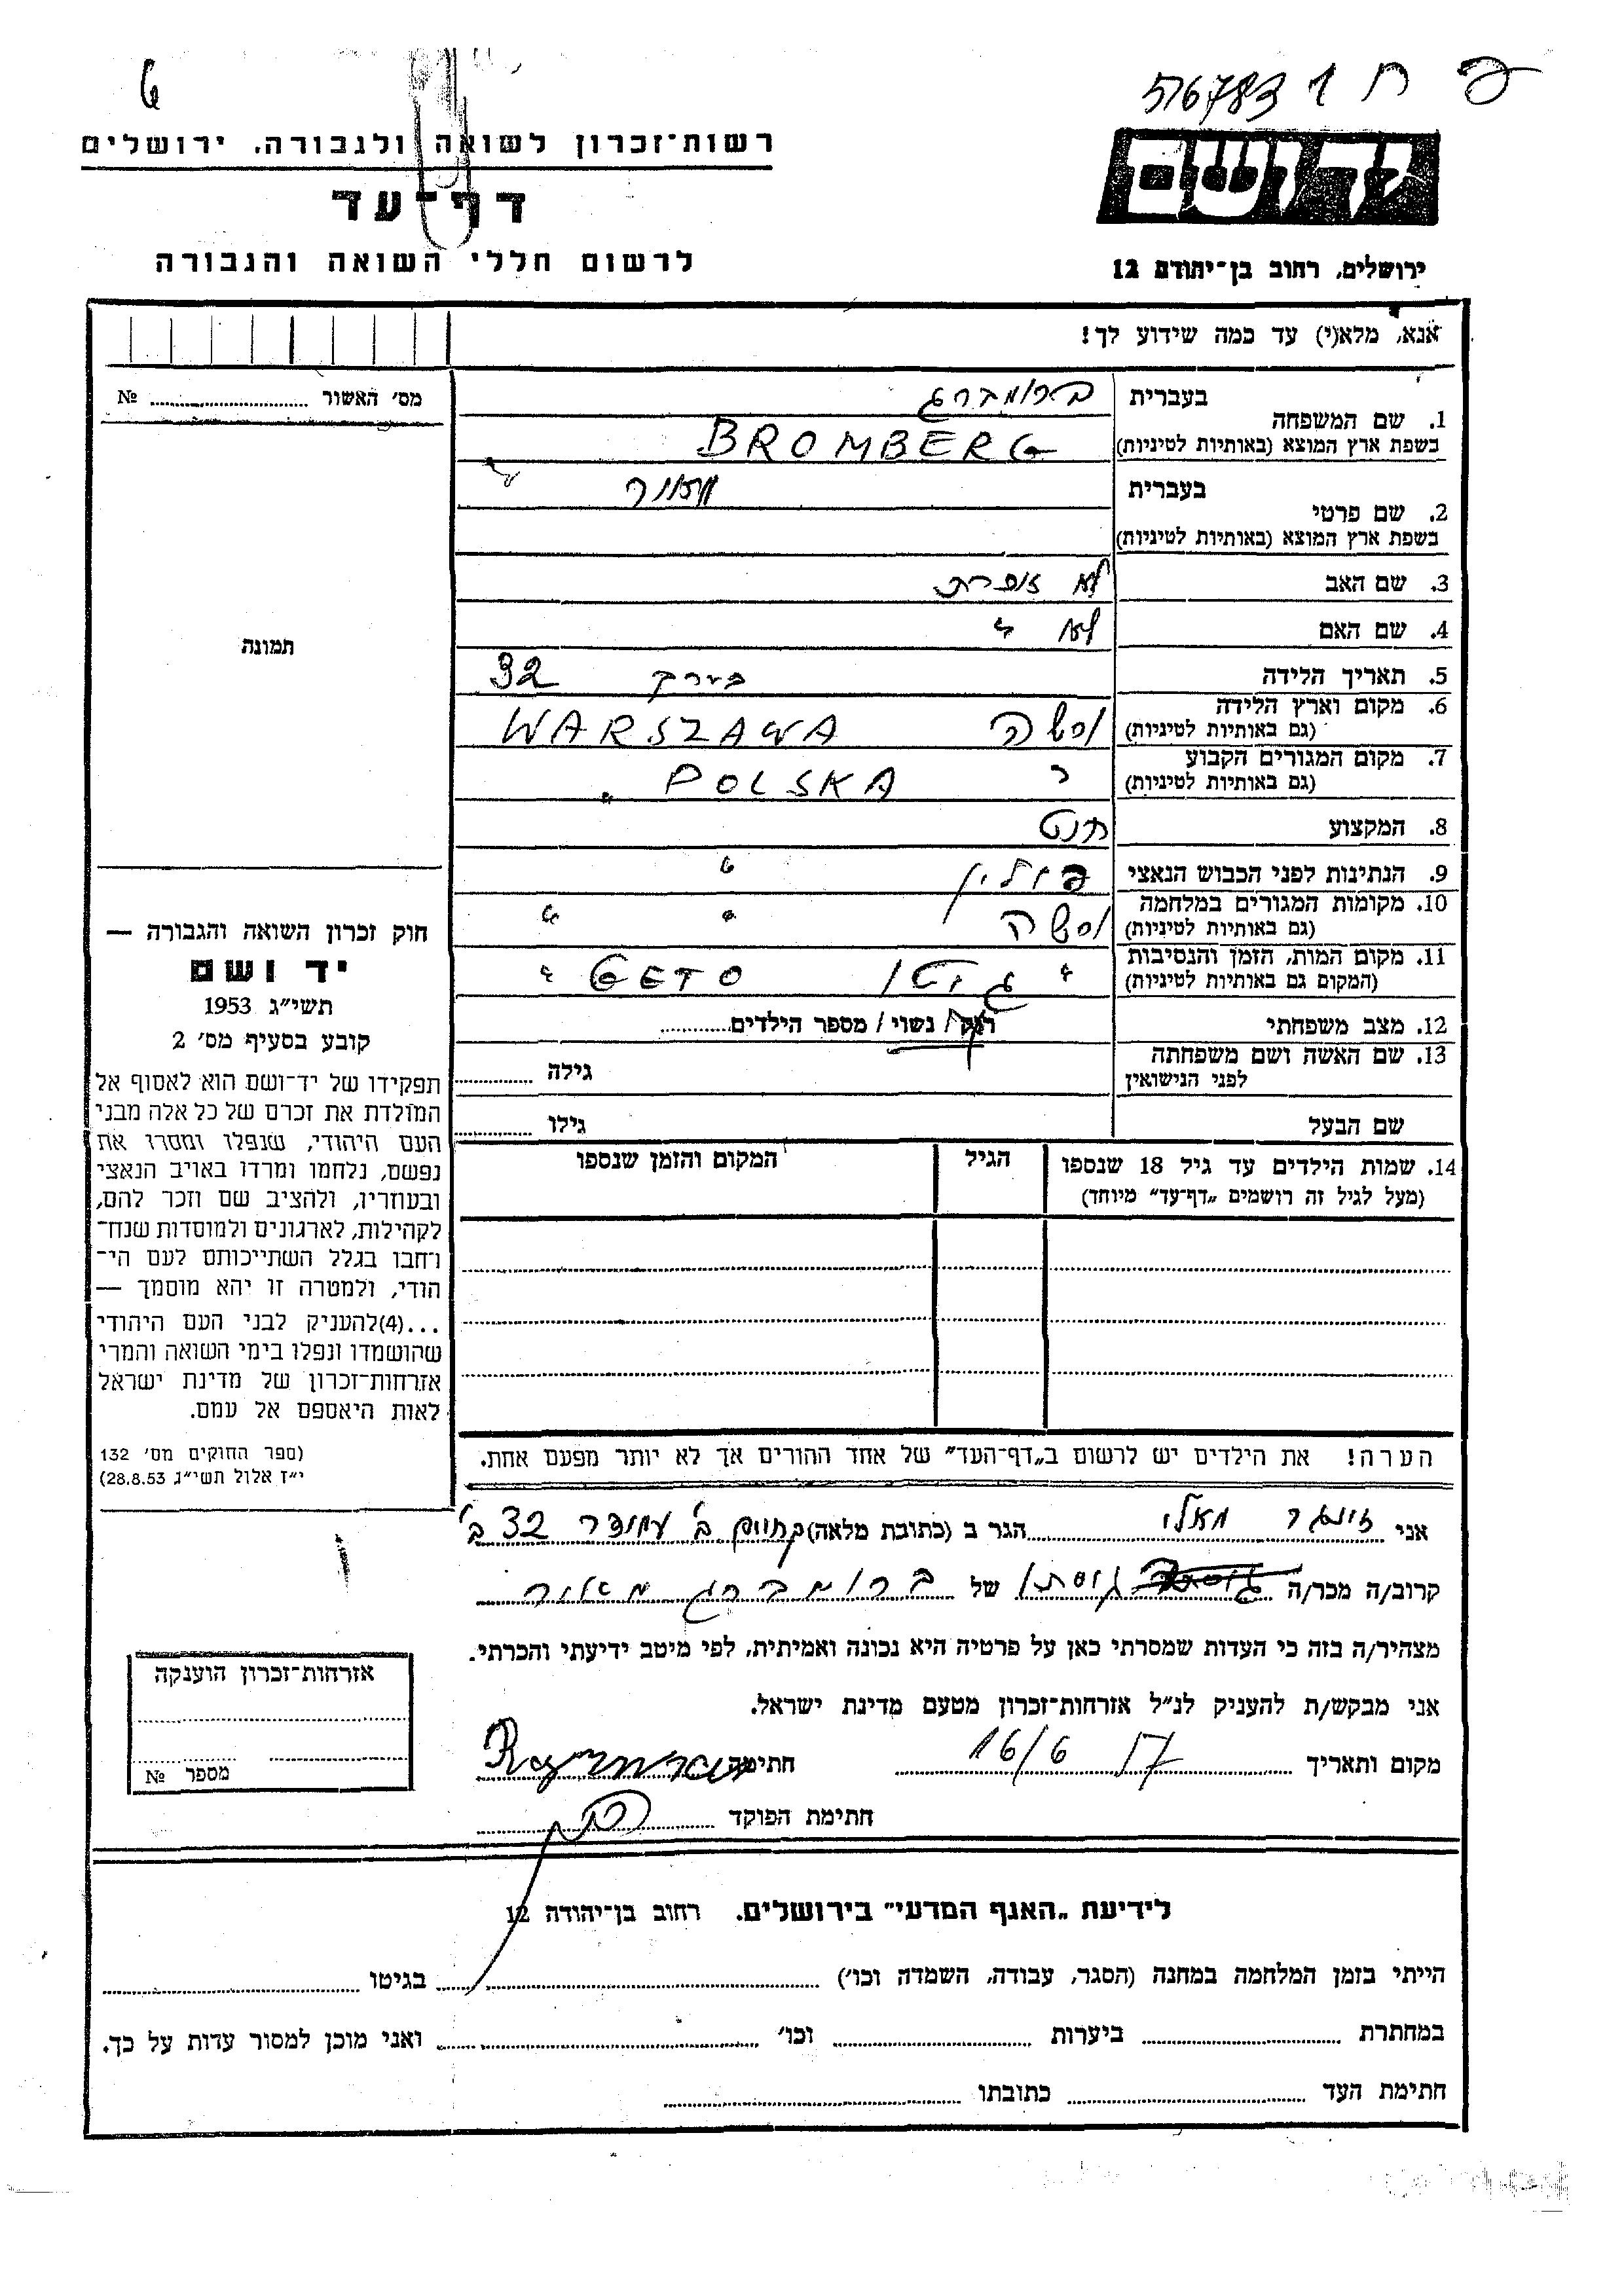 516783
רשות־זכרון לשואה ולגבורה. ירושלים
דף־עד
לרשום חללי השואה והגבורה
יד ושם
ירושלים, רחוב בן־יהודה 12
אנא, מלא(י) עד כמה שידוע לך!
מס׳ האשור № 
בעברית ברומברג
1. שם המשפחה
בשפת ארץ המוצא (באותיות לטיניות) BROMBERG
בעברית מאור
2. שם פרטי
בשפת ארץ המוצא (באותיות לטיניות)
3. שם האב לא זוכרת
4. שם האם לא "
5. תאריך הלידה בערך 32
6. מקום וארץ הלידה
(גם באותיות לטיניות) ורשה WARSZAWA
7. מקום המגורים הקבוע
(גם באותיות לטיניות) " POLSKA "
8. המקצוע
9. הנתינות לפני הכבוש הנאצי פולין "
10. מקומות המגורים במלחמה
(גם באותיות לטיניות) ורשה " "
11. מקום המות, הזמן והנסיבות
(המקום גם באותיות לטיניות) " גטו GETO "
12. מצב משפחתי רוק / נשוי / מספר הילדים
13. שם האשה ושם משפחתה
לפני הנישואין גילה
שם הבעל גילו
14. שמות הילדים עד גיל 18 שנספו
(מעל לגיל זה רושמים „דף־עד״ מיוחד)
הגיל
המקום והזמן שנספו
הערה! את הילדים יש לרשום ב„דף־העד״ של אחד ההורים אך לא יותר מפעם אחת.
תמונה
חוק זכרון השואה והגבורה —
יד ושם
תשי״ג 1953
קובע בסעיף מס׳ 2
תפקידו של יד־ושם הוא לאסוף אל
המולדת את זכרם של כל אלה מבני
העם היהודי, שנפלו ומסרו את
נפשם, נלחמו ומרדו באויב הנאצי
ובעוזריו, ולהציב שם וזכר להם,
לקהילות, לארגונים ולמוסדות שנח־
רחבו בגלל השתייכותם לעם הי־
הודי, ולמטרה זו יהא מוסמך —
...(4)להעניק לבני העם היהודי
שהושמדו ונפלו בימי השואה והמרי
אזרחות־זכרון של מדינת ישראל
לאות היאספם אל עמם.
(ספר החוקים מס׳ 132
י״ז אלול תשי״ג 28.8.53)
אני זינגר הגר ב (כתובת מלאה) 32 ב׳
קרוב/ה מכר/ה גיסתו של ברומברג מאור
מצהיר/ה בזה כי העדות שמסרתי כאן על פרטיה היא נכונה ואמיתית, לפי מיטב ידיעתי והכרתי.
אני מבקש/ת להעניק לנ״ל אזרחות־זכרון מטעם מדינת ישראל.
מקום ותאריך 16/6 חתימה
חתימת הפוקד
אזרחות־זכרון הוענקה
מספר №
לידיעת „האגף המדעי״ בירושלים. רחוב בן־יהודה 12
הייתי בזמן המלחמה במחנה (הסגר, עבודה, השמדה וכו׳) בגיטו
במחתרת ביערות וכו׳ ואני מוכן למסור עדות על כך.
חתימת העד כתובתו